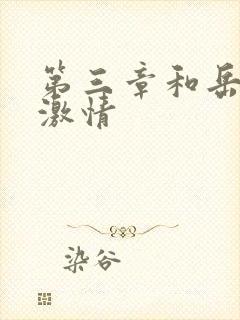 第三章和岳
激情
染谷